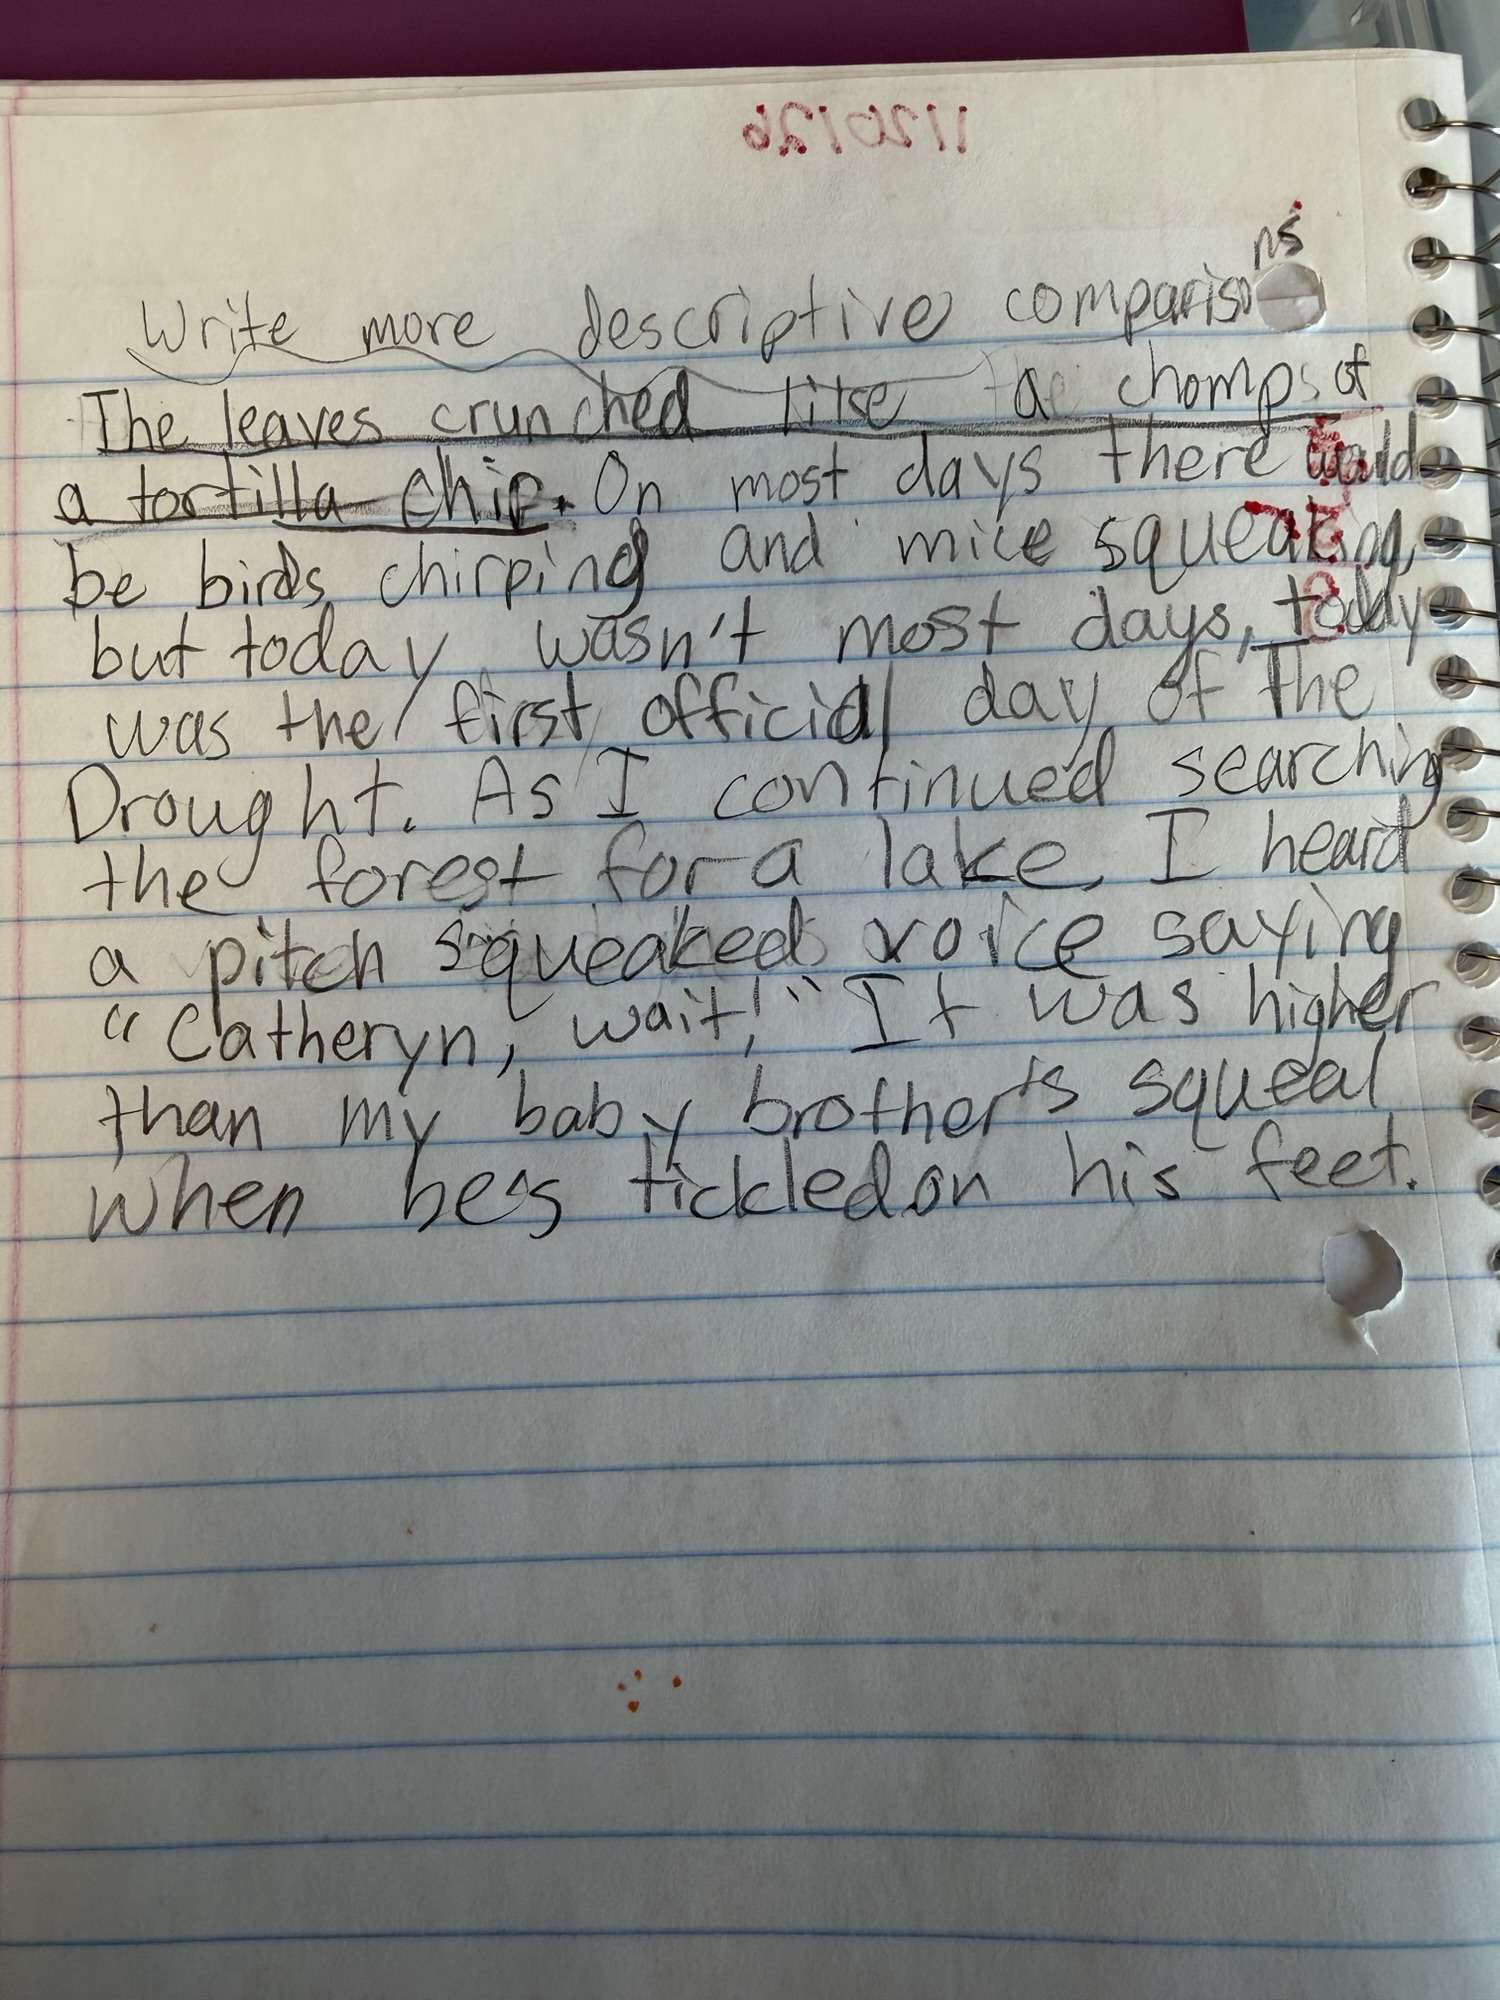 Write more descriptive comparisons
The leaves crunched like a chomp of
a tortilla chip. On most days there would
be birds chirping and mice squeaking,
but today wasn't most days, today
was the first official day of The
Drought. As I continued searching
the forest for a lake, I heard
a pitch squeaked voice saying
"Catheryn, wait!" It was higher
than my baby brother's squeal
when he's tickled on his feet.